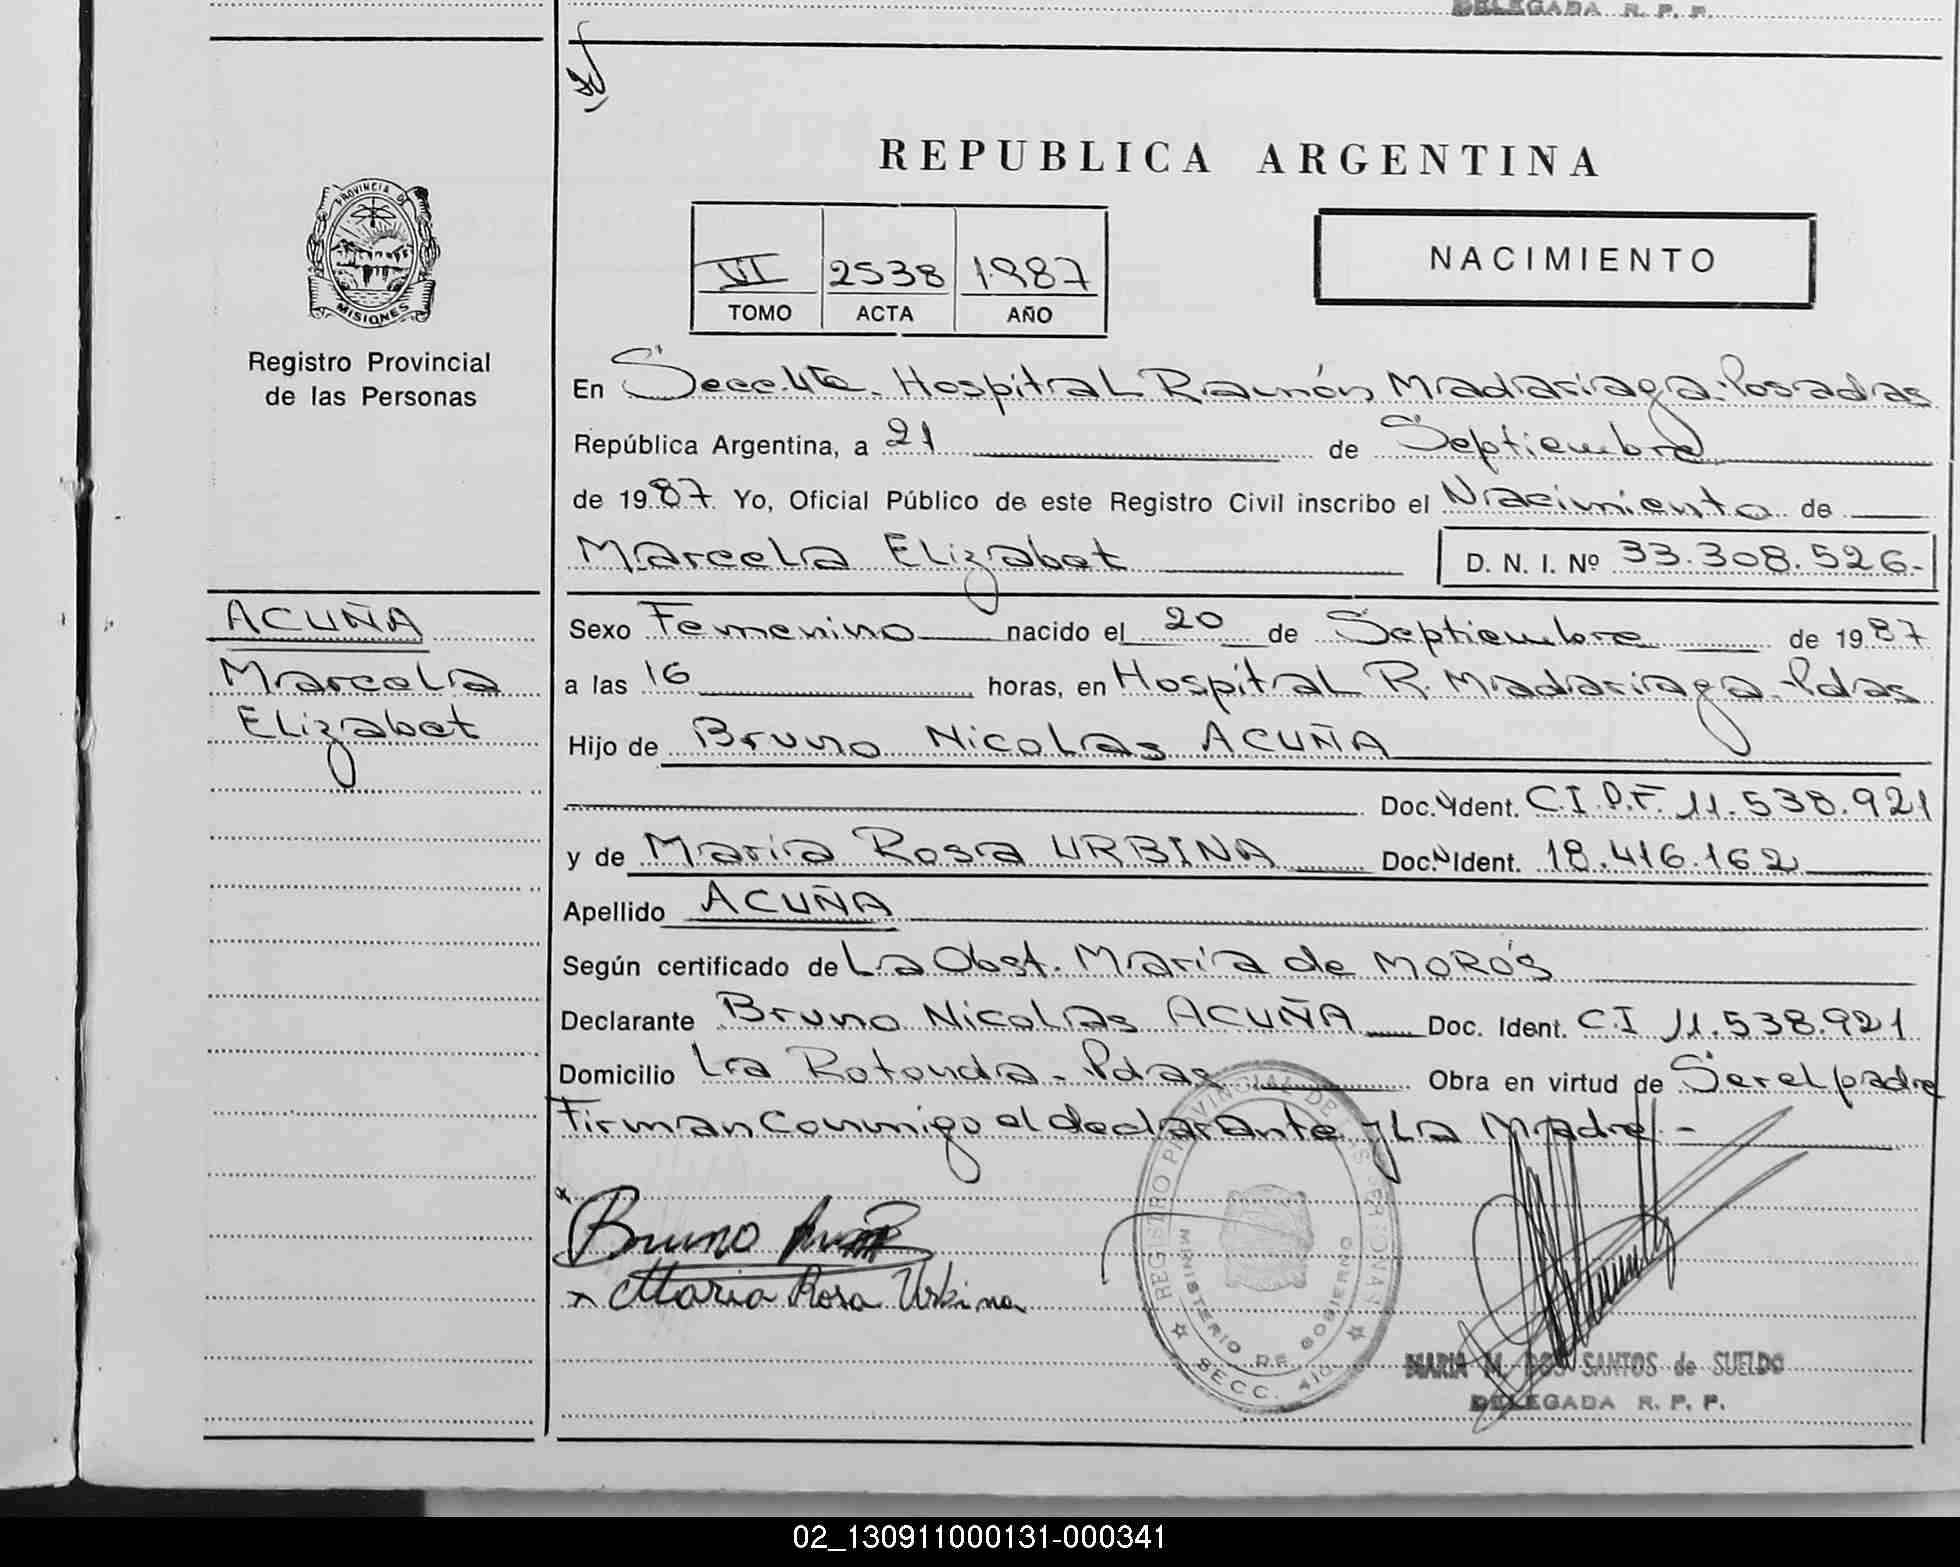 DELEGADA R. P. P.
REPUBLICA ARGENTINA
PROVINCIA DE
MISIONES
Registro Provincial
de las Personas
VI 2538 1987
TOMO ACTA AÑO
NACIMIENTO
En Secc. 4ta. Hospital Ramón Madariaga-Posadas
República Argentina, a 21 de Septiembre
de 1987 Yo, Oficial Público de este Registro Civil inscribo el Nacimiento de
Marcela Elizabet D. N. I. Nº 33.308.526.-
ACUÑA
Marcela
Elizabet
Sexo Femenino nacido el 20 de Septiembre de 1987
a las 16 horas, en Hospital R. Madariaga-Pdas
Hijo de Bruno Nicolas ACUÑA
Doc. Ident. C.I.P.F. 11.538.921
y de María Rosa URBINA Doc. Ident. 18.416.162
Apellido ACUÑA
Según certificado de La Obst. María de MOROS
Declarante Bruno Nicolas ACUÑA Doc. Ident. C.I 11.538.921
Domicilio La Rotonda - Pdas Obra en virtud de Ser el padre
Firman Conmigo el declarante y La Madre.-
Bruno
x Maria Rosa Urbina
REGISTRO PROVINCIAL DE LAS PERSONAS
MINISTERIO DE GOBIERNO
SECC.
MARIA M. DOS SANTOS de SUELDO
DELEGADA R. P. P.
02_130911000131-000341